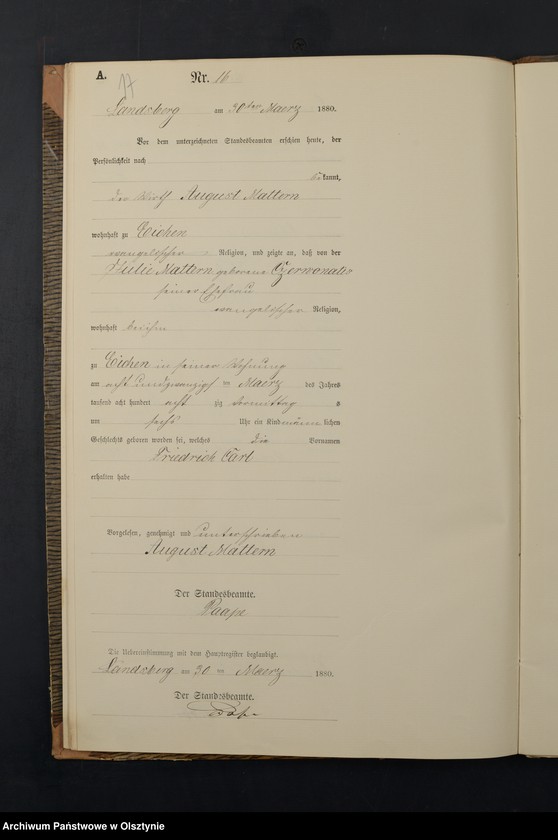 A.
17
Nr. 16
Landsberg am 30ten Maerz 1880.
Vor dem unterzeichneten Standesbeamten erschien heute, der
Persönlichkeit nach
bekannt,
der Wirth August Mattern
wohnhaft zu Eichen
evangelischer Religion, und zeigte an, daß von der
Julie Mattern geborene
seiner Ehefrau
evangelischer Religion,
wohnhaft bei ihm
zu Eichen in seiner Wohnung
am acht und zwanzigst ten Maerz des Jahres
tausend acht hundert acht zig Vormittag s
um sechs Uhr ein Kind männ lichen
Geschlechts geboren worden sei, welches die Vornamen
Friedrich Carl
erhalten habe
Vorgelesen, genehmigt und unterschrieben
August Mattern
Der Standesbeamte.
Die Uebereinstimmung mit dem Hauptregister beglaubigt.
Landsberg am 30 ten Maerz 1880.
Der Standesbeamte.
Archiwum Państwowe w Olsztynie